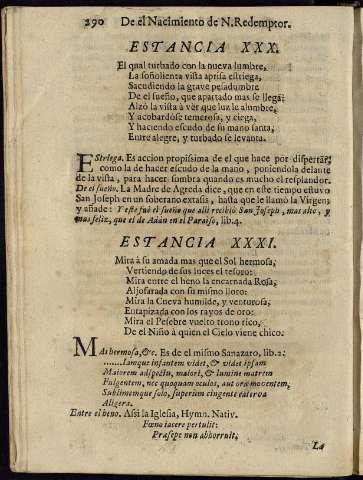 290 De el Nacimiento de N. Redemptor.
ESTANCIA XXX.
El qual turbado con la nueva lumbre,
La soñolienta vista aprisa estriega,
Sacudiendo la grave pesadumbre
De el sueño, que apartado mas se llega:
Alzò la vista à vèr que luz le alumbre,
Y acobardòse temerosa, y ciega,
Y haciendo escudo de su mano santa,
Entre alegre, y turbado se levanta.
EStriega. Es accion propissima de el que hace por dispertar,
como la de hacer escudo de la mano, poniendola delante
de la vista, para hacer sombra quando es mucho el resplandor.
De el sueño. La Madre de Agreda dice, que en este tiempo estuvo
San Joseph en un soberano extasis, hasta que le llamò la Virgen,
y añade: Y este fuè el sueño que alli recibiò San Joseph, mas alto, y
mas feliz, que el de Adàn en el Paraiso, lib. 4.
ESTANCIA XXXI.
Mira à su amada mas que el Sol hermosa,
Vertiendo de sus luces el tesoro:
Mira entre el heno la encarnada Rosa,
Aljofarada con su mismo lloro:
Mira la Cueva humilde, y venturosa,
Entapizada con los rayos de oro:
Mira el Pesebre vuelto trono rico,
De el Niño à quien el Cielo viene chico.
MAs hermosa, &c. Es de el mismo Sanazaro, lib. 2:
.......Iamque infantem videt, & videt ipsam
Maiorem adspectu, maiori, & lumine matrem
Fulgentem, nec quoquam oculos, aut ora moventem,
Sublimemque solo, superùm cingente caterva
Aligera.
Entre el heno. Assi la Iglesia, Hymn. Nativ.
Fœno iacere pertulit:
Præsepe non abhorruit,
La